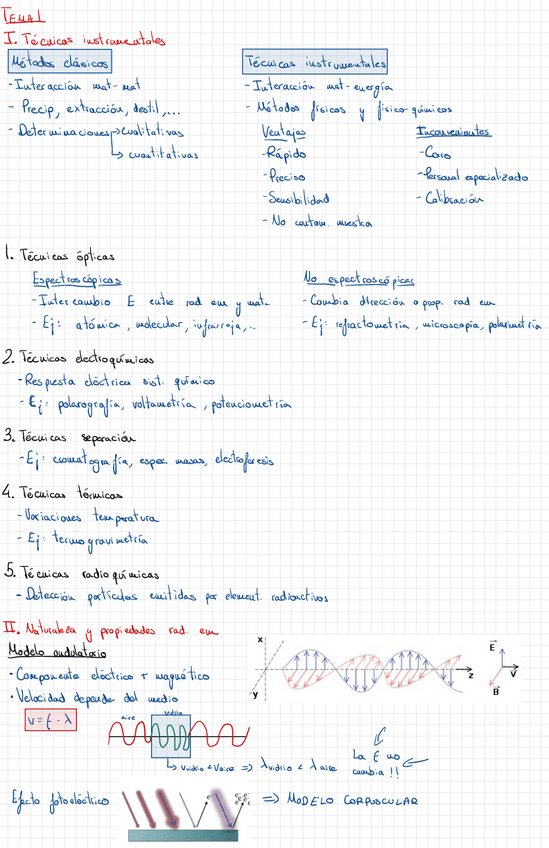 TEMA 1
I. Técnicas instrumentales
Métodos clásicos
- Interacción mat-mat
- Precip, extracción, destil,...
- Determinaciones → cualitativas
↳ cuantitativas
Técnicas instrumentales
- Interacción mat-energía
- Métodos físicos y físico-químicos
Ventajas
- Rápido
- Preciso
- Sensibilidad
- No contam. muestra
Inconvenientes
- Caro
- Personal especializado
- Calibración
1. Técnicas ópticas
Espectroscópicas
- Intercambio E entre rad em y mat.
- Ej: atómica, molecular, infrarroja,..
No espectroscópicas
- Cambia dirección o prop. rad em
- Ej: refractometría, microscopía, polarimetría
2. Técnicas electroquímicas
- Respuesta eléctrica sist. químico
- Ej: polarografía, voltametría, potenciometría
3. Técnicas separación
- Ej: cromatografía, espec. masas, electroforesis
4. Técnicas térmicas
- Variaciones temperatura
- Ej: termogravimetría
5. Técnicas radioquímicas
- Detección partículas emitidas por element. radioactivos
II. Naturaleza y propiedades rad. em
Modelo ondulatorio
• Componente eléctrico + magnético
• Velocidad depende del medio
v = f · λ
x
y
z
E
V
B
aire
vidrio
↳ Vvidrio < Vaire ⇒ λvidrio < λaire
La f no
cambia !!
Efecto fotoeléctrico
e⁻
e⁻ e⁻
⇒ MODELO CORPUSCULAR